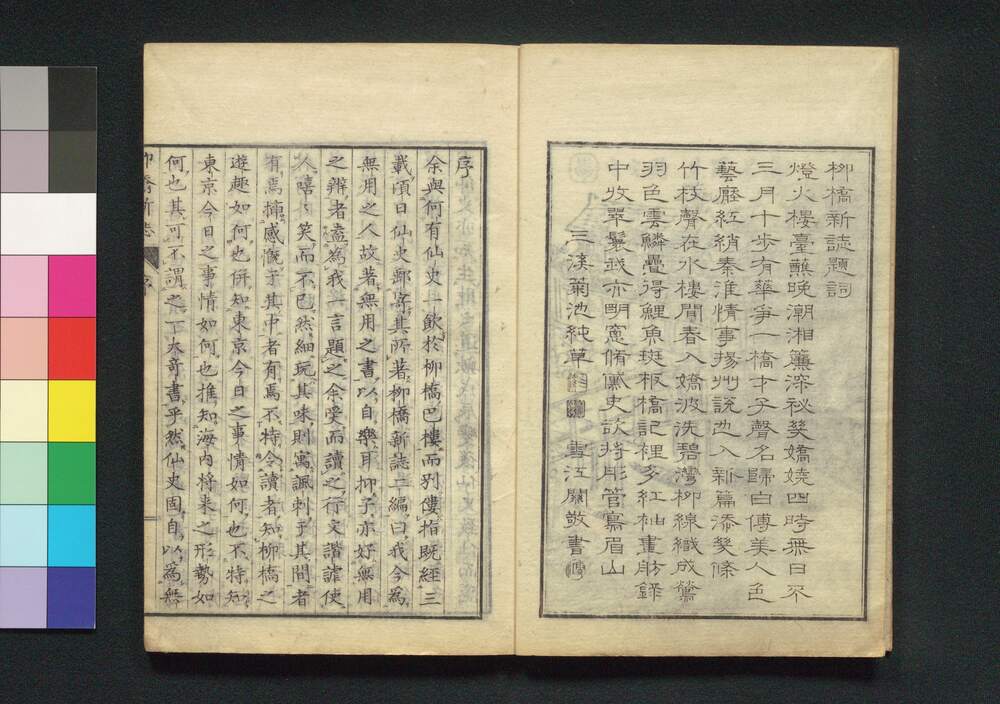 柳橋新誌題詞
燈火樓臺蘸晩潮湘簾深祕幾嬌嬈四時無日不
三月十步有華爭一橋才子聲名歸白傅美人色
藝壓紅綃秦淮情事揚州說也入新篇添幾條
竹枝聲在水樓間春入嬌波洗碧灣柳線織成鶯
羽色雲鱗疊得鯉魚斑板橋記裡多紅袖畫舫錄
中收翠鬟我亦明窻脩儷史欲將彤管寫眉山
三溪菊池純草
雪江關敬書
序
余與何有仙史一飲於柳橋巴樓而別僂指既經三
載頃日仙史郵寄其所著柳橋新誌二編曰我今爲
無用之人故著無用之書以自樂耳抑子亦好無用
之辨者盍爲我一言題之余受而讀之行文諧謔使
人嘻々笑而不已然細玩其味則寓諷刺于其間者
有焉揷感慨于其中者有焉不特令讀者知柳橋之
遊趣如何也併知東京今日之事情如何也不特知
東京今日之事情如何也推知海內將來之形勢如
何也其可不謂之一大奇書乎然仙史固自以爲無
柳橋新誌 序